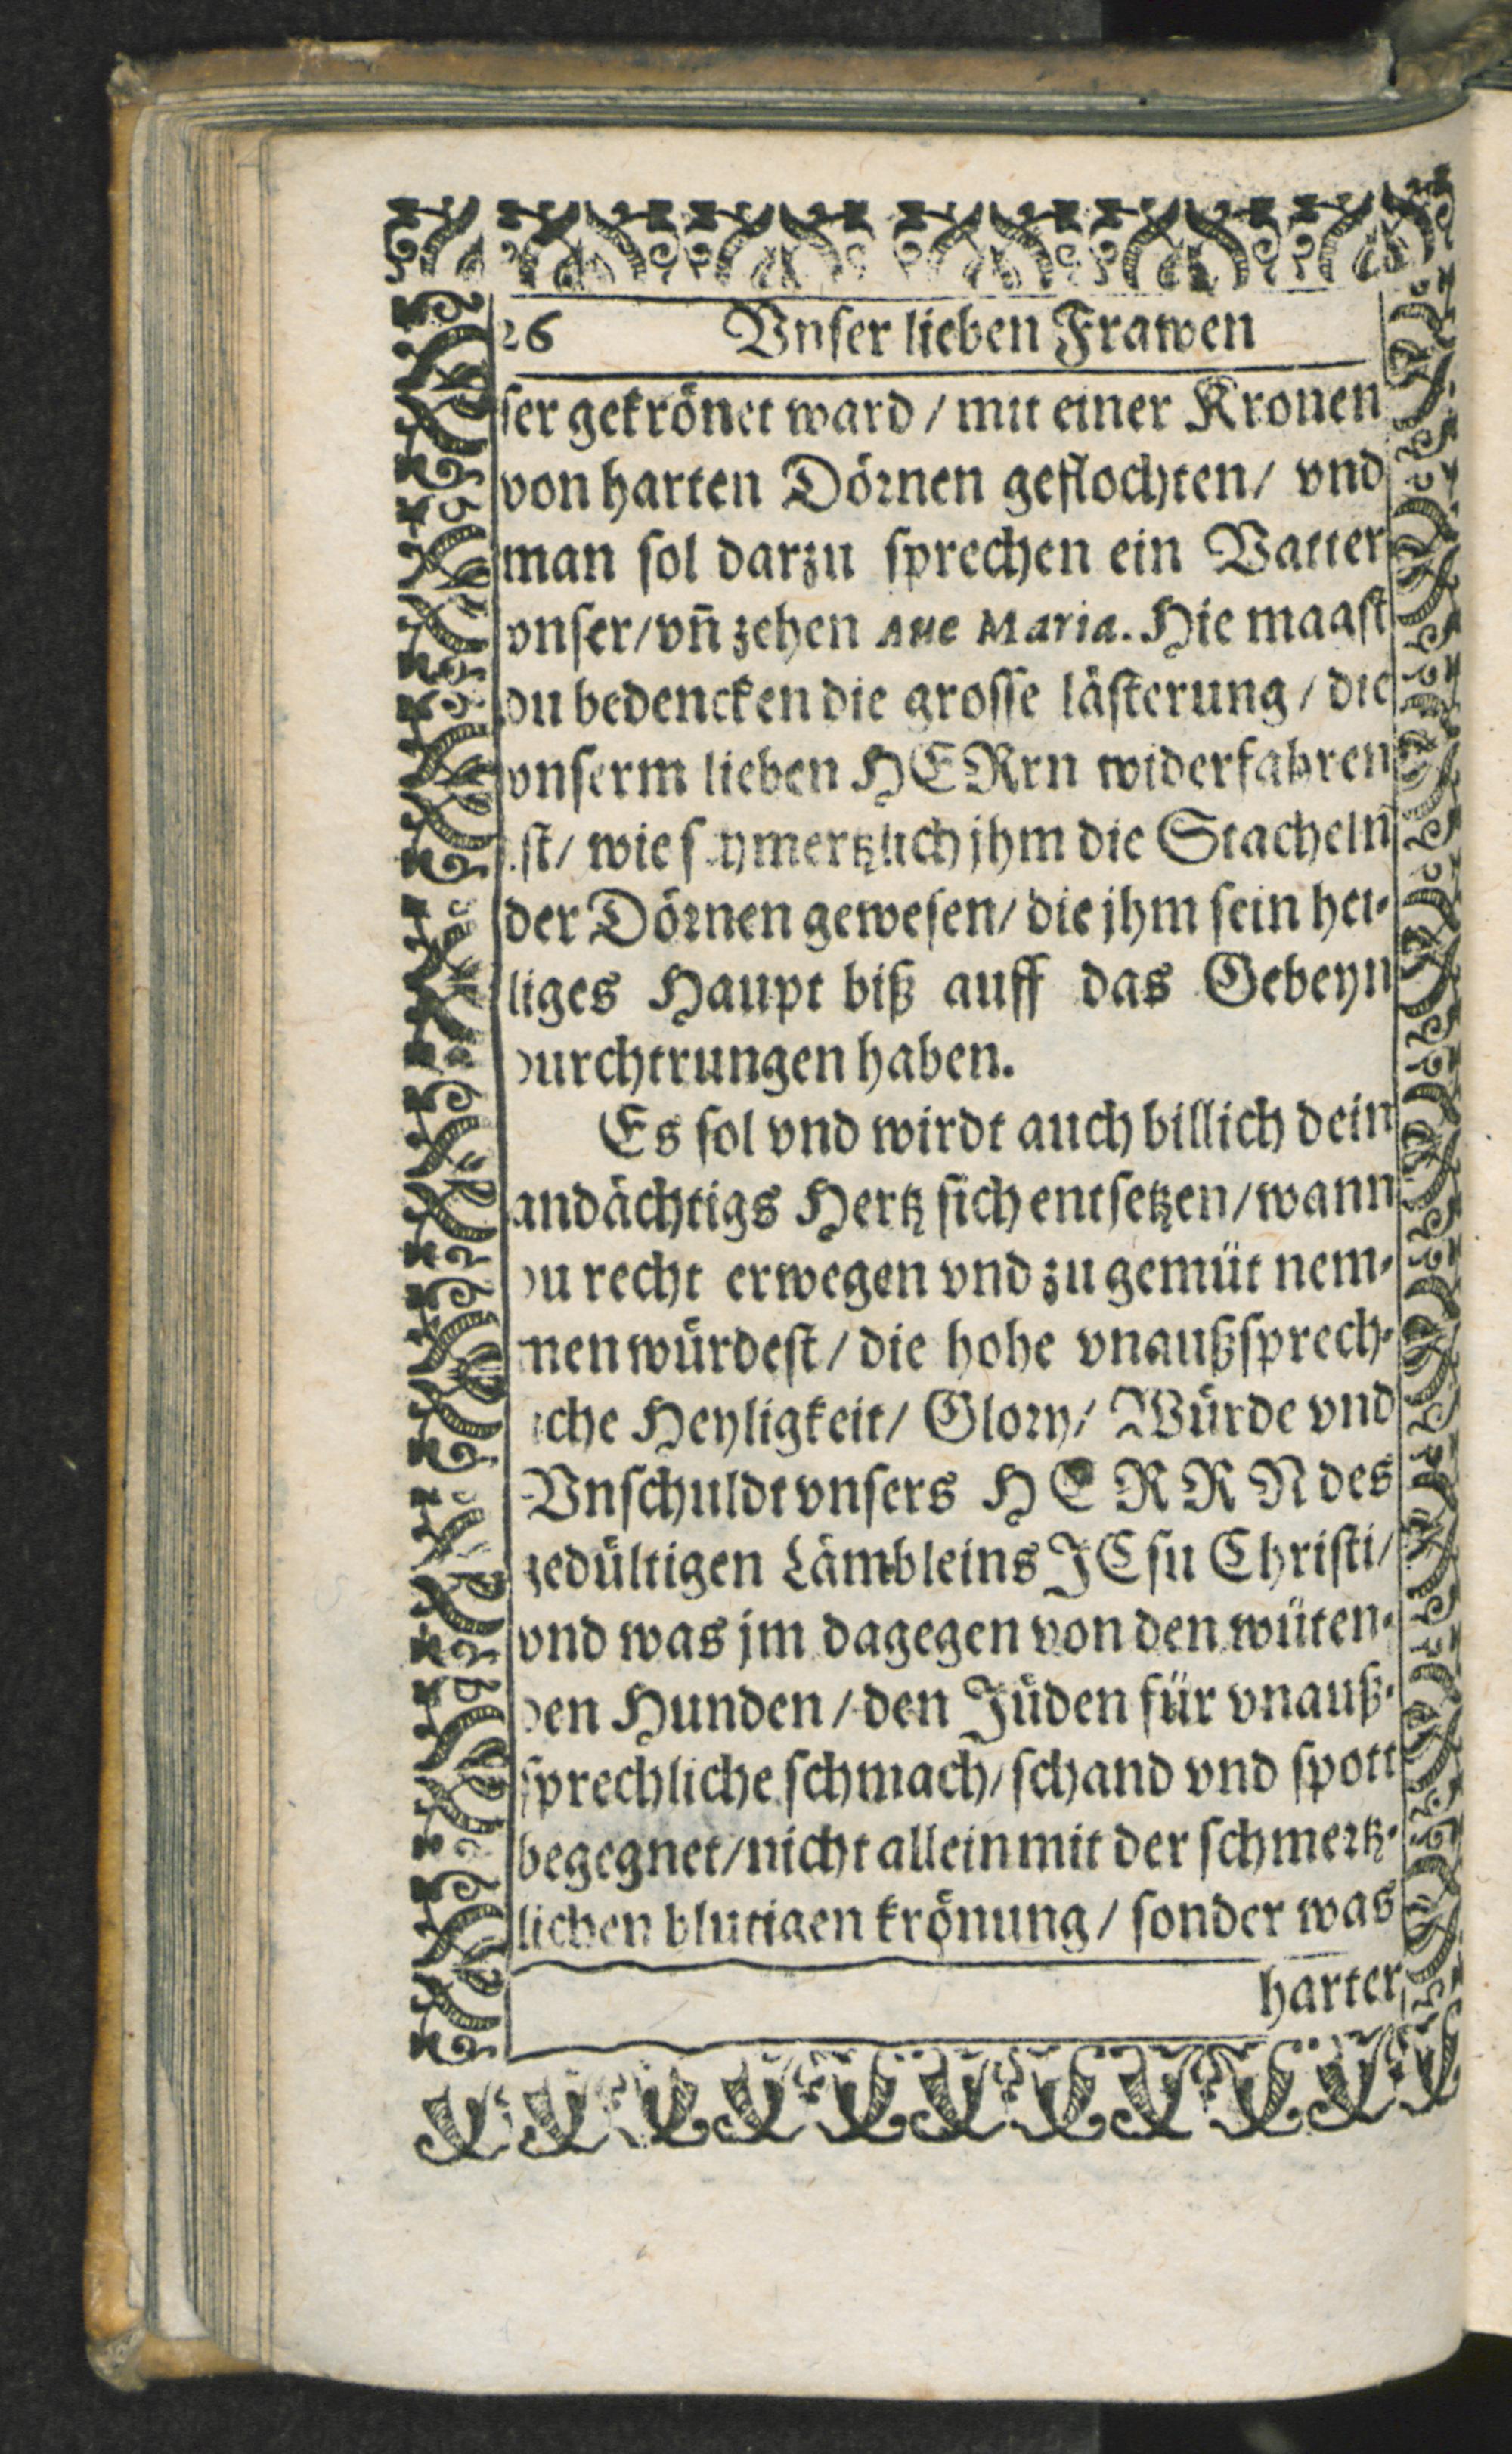 26 Vnser lieben Frawen
ser gekrönet ward / mit einer Kronen
von harten Dörnen geflochten / vnd
man sol darzu sprechen ein Vatter
vnser / vn̄ zehen Aue Maria. Hie magst
du bedencken die grosse lästerung / die
vnserm lieben HERrn widerfahren
ist / wie schmertzlich jhm die Stacheln
der Dörnen gewesen / die jhm sein hei-
liges Haupt biß auff das Gebeyn
durchtrungen haben.
Es sol vnd wirdt auch billich dein
andächtigs Hertz sich entsetzen / wann
du recht erwegen vnd zu gemüt nem-
men würdest / die hohe vnaußsprech-
liche Heyligkeit / Glory / Würde vnd
Vnschuldt vnsers HERRN des
gedültigen Lämbleins JEsu Christi /
vnd was jm dagegen von den wüten-
den Hunden / den Jüden für vnauß-
sprechliche schmach / schand vnd spott
begegnet / nicht allein mit der schmertz-
lichen blutigen krönung / sonder was
harter